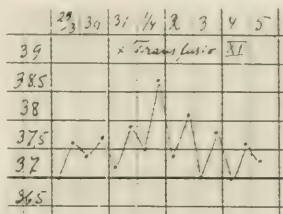 29/3 30 31 1/4 2 3 4 5
39 x Transfusio XI
38.5
38
37,5
37
36,5